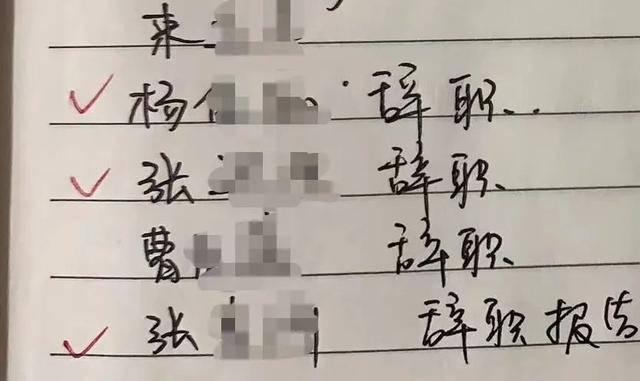 来
杨 辞职..
张 辞职.
曹 辞职.
张 辞职报告